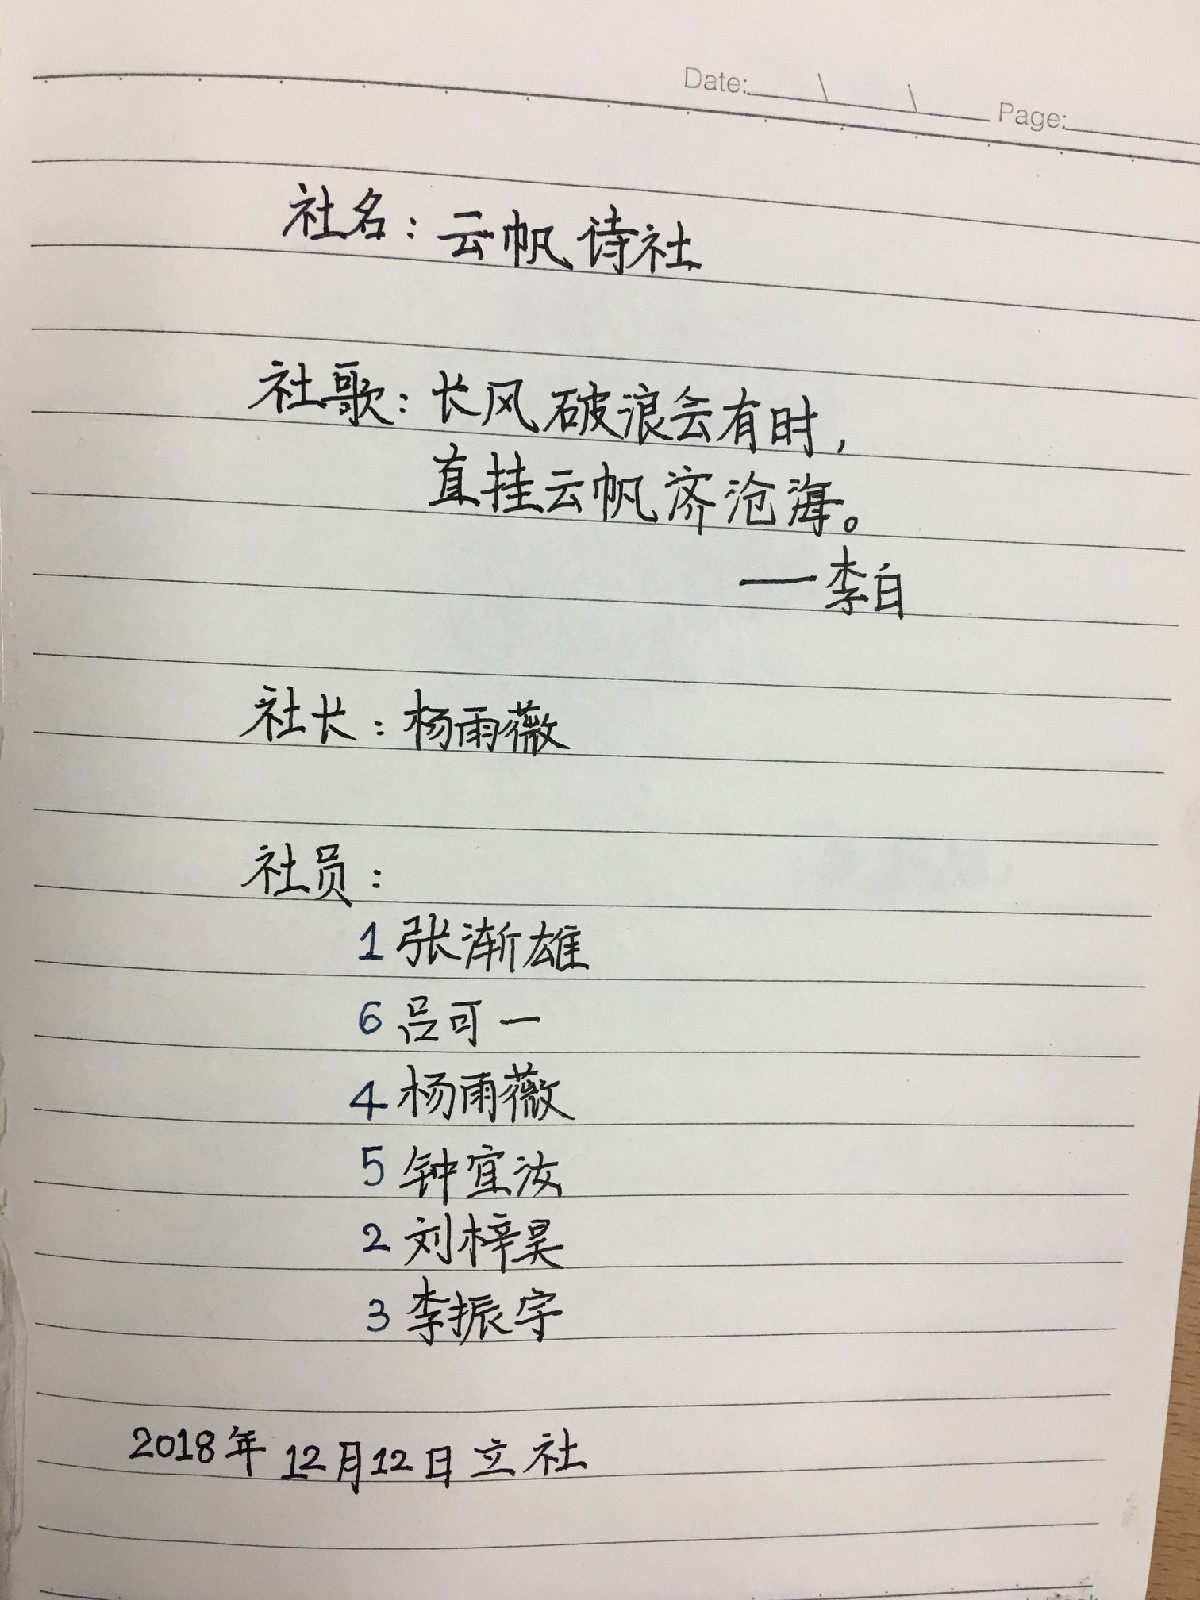 Date: \ \ Page:
社名：云帆诗社
社歌：长风破浪会有时，
直挂云帆济沧海。
——李白
社长：杨雨薇
社员：
1 张渐雄
6 吕可一
4 杨雨薇
5 钟宜汝
2 刘梓昊
3 李振宇
2018年12月12日立社